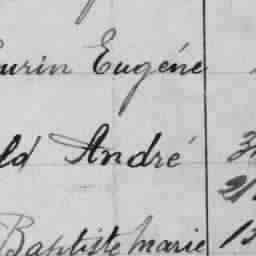 urin Eugéne
ld André
Baptiste Marie 13